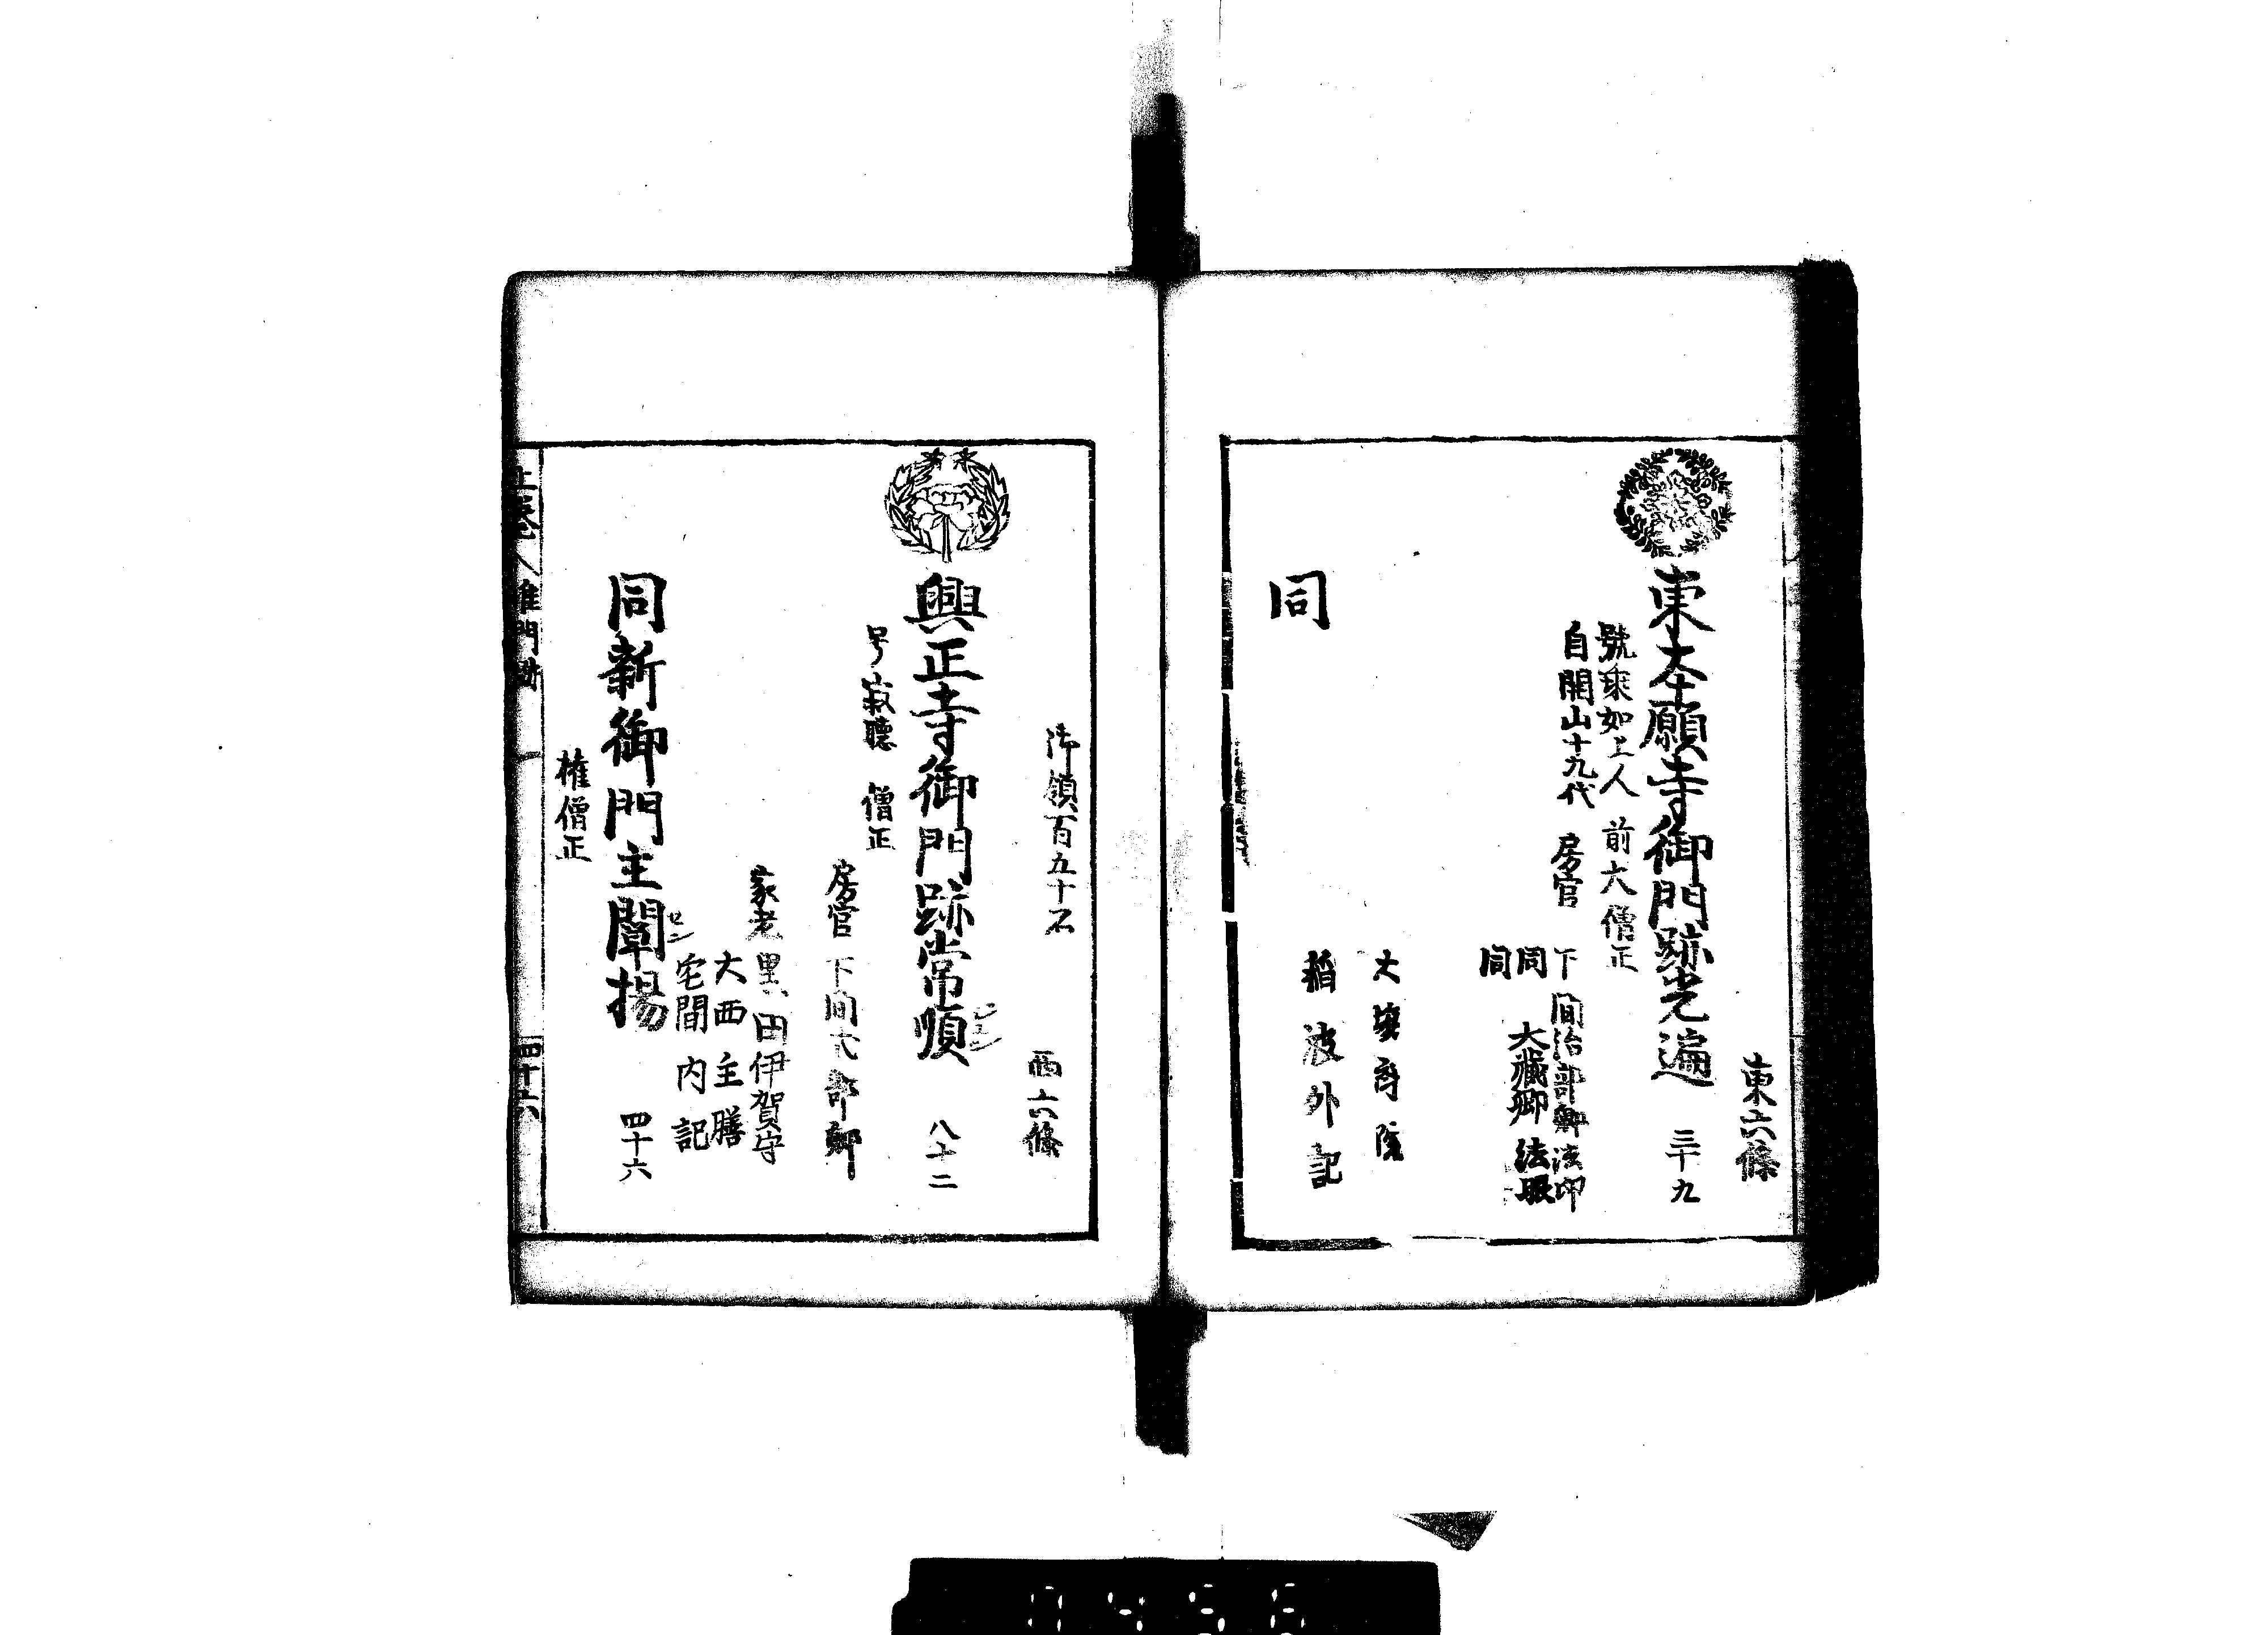 東六條
東本願寺御門跡光遍 三十九
號乘如上人 前大僧正
自開山十九代 房官
下間治部卿法印
同 大藏卿法眼
同
稲波外記
同
御領百五十石
西六條
興正寺御門跡常順 八十二
号寂聽 僧正
房官 下間式部卿
家老 黒田伊賀守
大西主膳
宅間内記
同新御門主闡揚 四十六
センニ
權僧正
上巻 准門跡 四十六